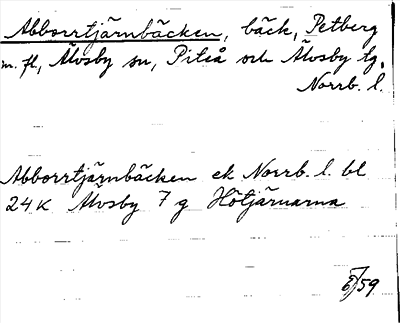 Abborrtjärnbäcken, bäck, Petberg
m. fl., Älvsby sn, Piteå och Älvsby tg,
Norrb. l.
Abborrtjärnbäcken ek Norrb. l. bl
24K Älvsby 7 g Hötjärnarna
59